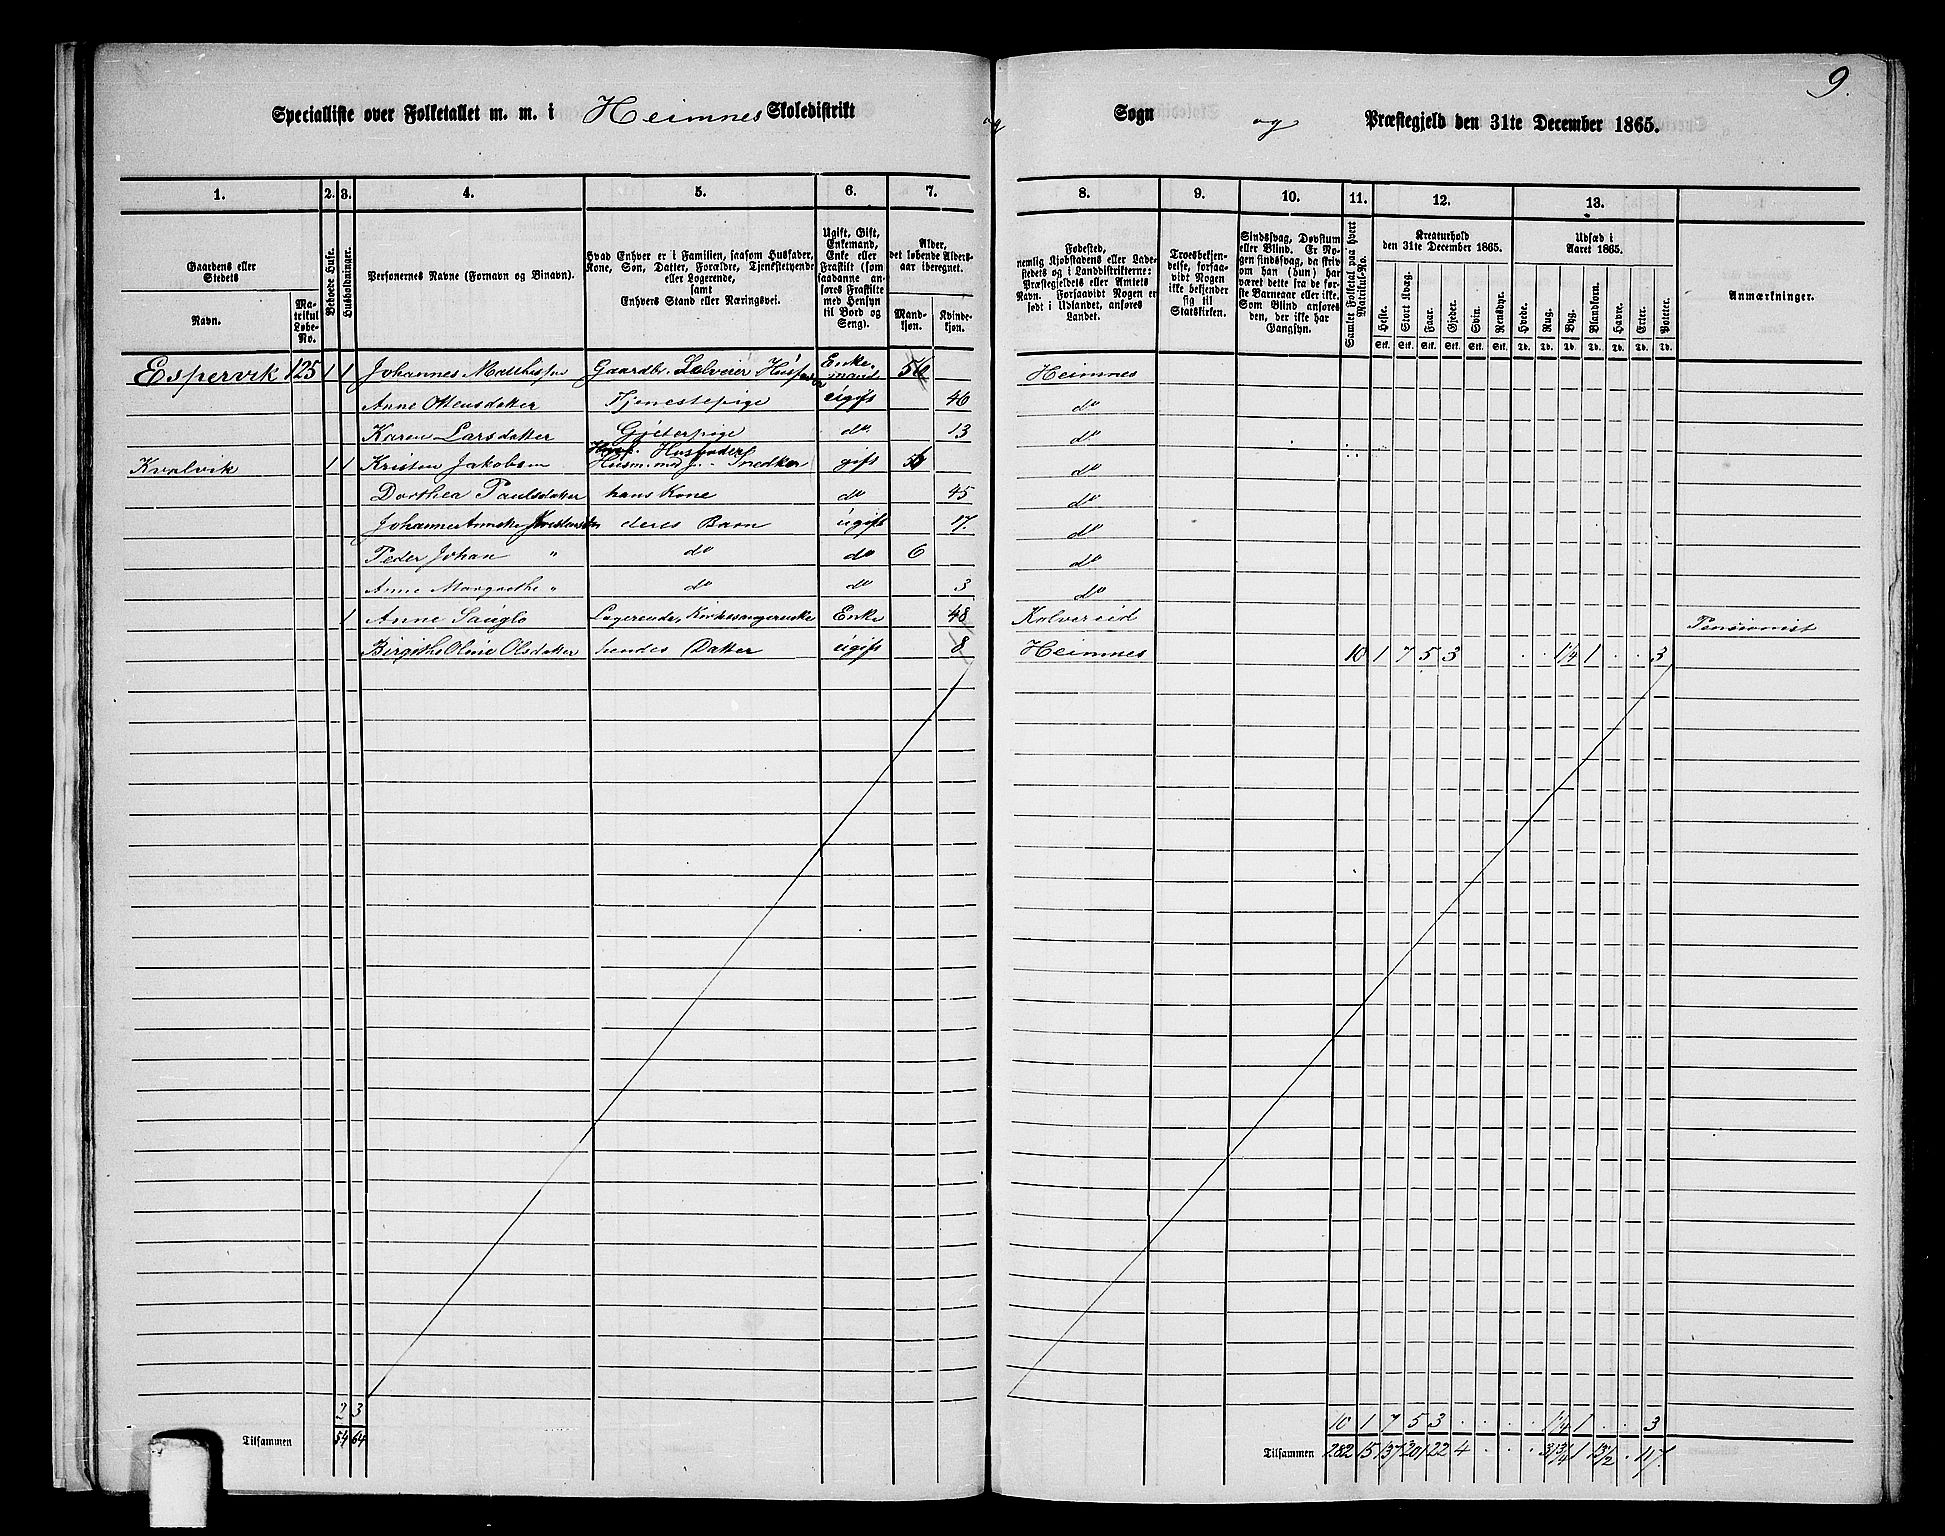 9.
Specialliste over Folketallet m. m. i Heimnes Skoledistrikt
og Sogn og Præstegjeld den 31te December 1865.
1. 2. 3. 4. 5. 6. 7. 8. 9. 10. 11. 12. 13.
Gaardens eller Stedets
Navn.
Matrikul Løbe-No.
Beboede Huse.
Husholdninger.
Personernes Navne (Fornavn og Binavn).
Hvad Enhver er i Familien, saasom Husfader, Kone, Søn, Datter, Forældre, Tjenestetyende eller Logerende,
samt
Enhvers Stand eller Næringsvei.
Ugift, Gift, Enkemand, Enke eller Fraskilt (som saadanne anføres Fraskilte med Hensyn til Bord og Seng).
Alder, det løbende Alders-aar iberegnet.
Mand-kjøn. Kvinde-kjøn.
Fødested,
nemlig Kjøbstadens eller Ladestedets og i Landdistrikterne: Præstegjeldets eller Amtets Navn. Forsaavidt Nogen er født i Udlandet, anføres Landet.
Troesbekjendelse, forsaavidt Nogen ikke bekjender sig til Statskirken.
Sindssvag, Døvstum eller Blind. Er Nogen sindssvag, da skriv om han (hun) har været dette fra de første Barneaar eller ikke. Som Blind anføres den, der ikke har Gangsyn.
Samlet Folketal paa hvert Matrikul-No.
Kreaturhold den 31te December 1865.
Heste. Stort Kvæg. Faar. Gjeder. Svin. Rensdyr.
Stk. Stk. Stk. Stk. Stk. Stk.
Udsæd i Aaret 1865.
Hvede. Rug. Byg. Blandkorn. Havre. Erter. Poteter.
Td. Td. Td. Td. Td. Td. Td.
Anmærkninger.
Espervik 125 1 1 Johannes Matthispn Gaardbr. Selveier Husfader Enkemand 56 Heimnes
Anne Ottensdatter Tjenestepige ugift 46 do
Karen Larsdatter Gjeterpige do. 13 do
Kvalvik 1 1 Kristen Jakobsen Husfader Husm. med j. Snedker gift 56 do
Dorthea Paulsdatter hans Kone do 45 do
Johanne Anneke Kristensdtr deres Barn ugift 17. do
Peder Johan " do do 6 do
Anne Margrethe " do do 3 do
1 Anne Sauglo Logerende, Kirkesangerenke Enke 48 Kolvereid Pensionist
Birgithe Oline Olsdatter hendes Datter ugift 8 Heimnes 10 1 7 5 3 . . 1 1/4 1 . . 3
2 3 10 1 7 5 3 . . . 1 1/4 1 . . 3
Tilsammen 54 64
Tilsammen 282 15 137 201 22 4 . . . 31 3/4 1 13 1/2 . 117.